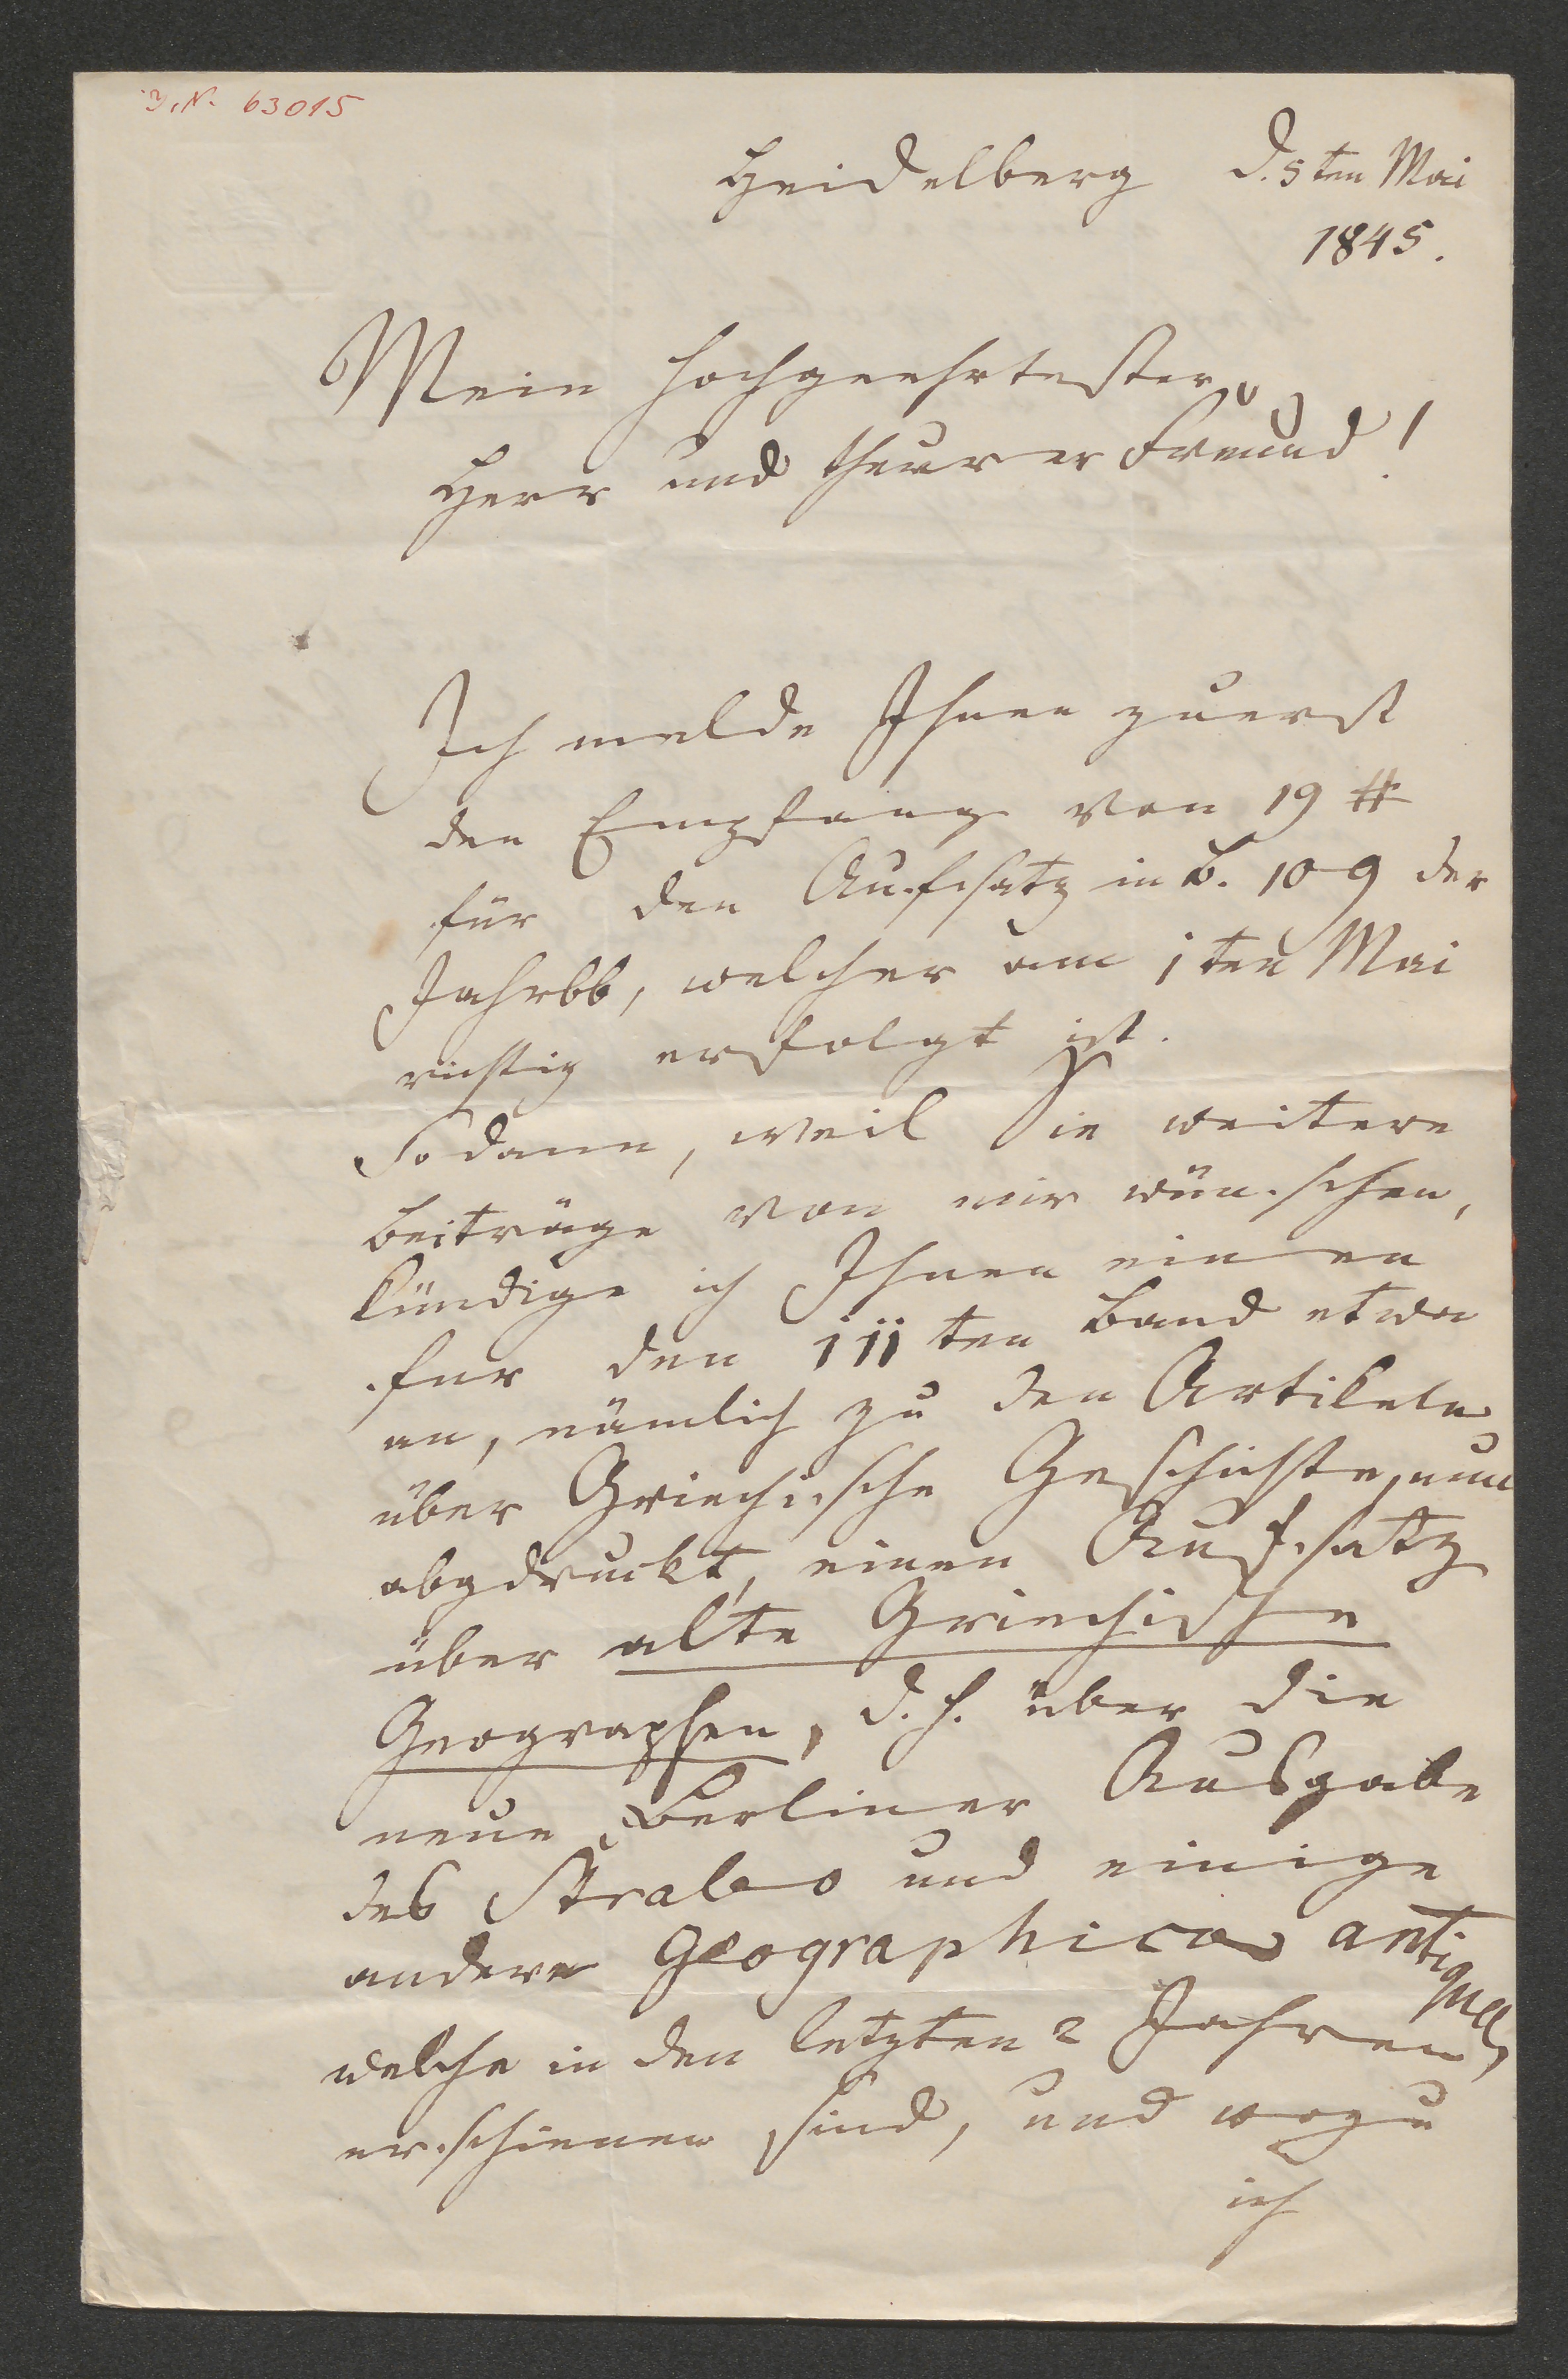 J. N. 63015
Heidelberg d. 5ten Mai
1845.
Mein hochgeehrtester
Herr und theurer Freund!
Ich melde Ihnen zuerst
den Empfang von 19 #
für den Aufsatz in B. 109 der
Jahrbb, welcher am 1ten Mai
richtig erfolgt ist.
Sodann, weil Sie weitere
Beiträge von mir wünschen,
kündige ich Ihnen einen
für den 111ten Band etwa
an, nämlich zu den Artikeln
über Griechische Geschichte, nun
abgedruckt, einen Aufsatz
über alte Griechische
Geographen, d. h. über die
neue Berliner Ausgabe
des Strabo und einige
andere Geographica antiqua,
welche in den letzten 2 Jahren
erschienen sind, und wozu
ich